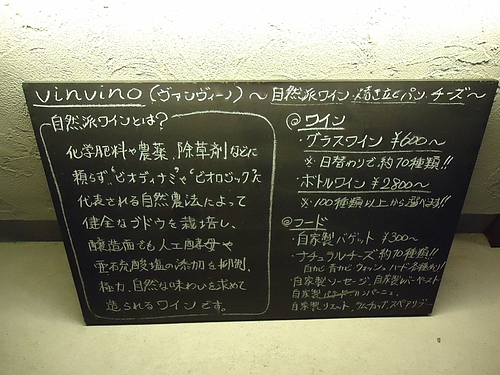 vinvino(ヴァンヴィーノ)～自然派ワイン 焼き立てパン チーズ～
自然派ワインとは?
化学肥料や農薬、除草剤などに
頼らず、"ビオディナミ"や"ビオロジック"に
代表される自然農法によって
健全なブドウを栽培し、
醸造面でも人工酵母や
亜硫酸塩の添加を抑制、
極力、自然な味わいを求めて
造られるワインです。
@ワイン
・グラスワイン ¥600～
※日替わりで約10種類!!
・ボトルワイン ¥2800～
※100種類以上から選べます!!
@フード
・自家製バゲット ¥300～
・ナチュラルチーズ約10種類!!
白カビ 青カビ ウォッシュ ハード 各種あり!!
・自家製ソーセージ、自家製レバーペースト
自家製 カンパーニュ、
自家製リエット、ラムチョップ、スペアリブ